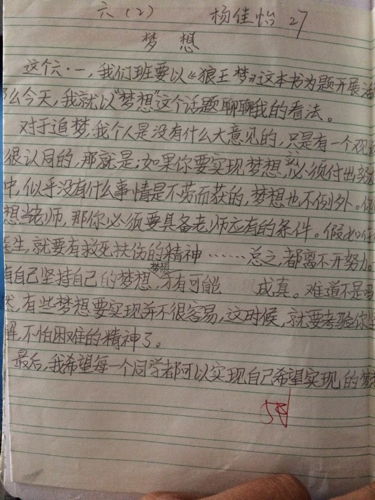 六（2） 杨佳怡 27
梦想
这个六·一，我们班要以《狼王梦》这本书为题开展活
么今天，我就以“梦想”这个话题聊聊我的看法。
对于追梦，我个人是没有什么大意见的，只是有一个观
很认同的，那就是：如果你要实现梦想，必须付出
中，似乎没有什么事情是不劳而获的，梦想也不例外。
想当老师，那你必须要具备老师应有的条件。假如你
医生，就要有救死扶伤的精神……总之，都离不开努力。
有自己坚持自己的梦想，梦想才有可能成真。难道不是
然，有些梦想要实现并不很容易，这时候，就要考验你
解，不怕困难的精神了。
最后，我希望每一个同学都可以实现自己希望实现的梦